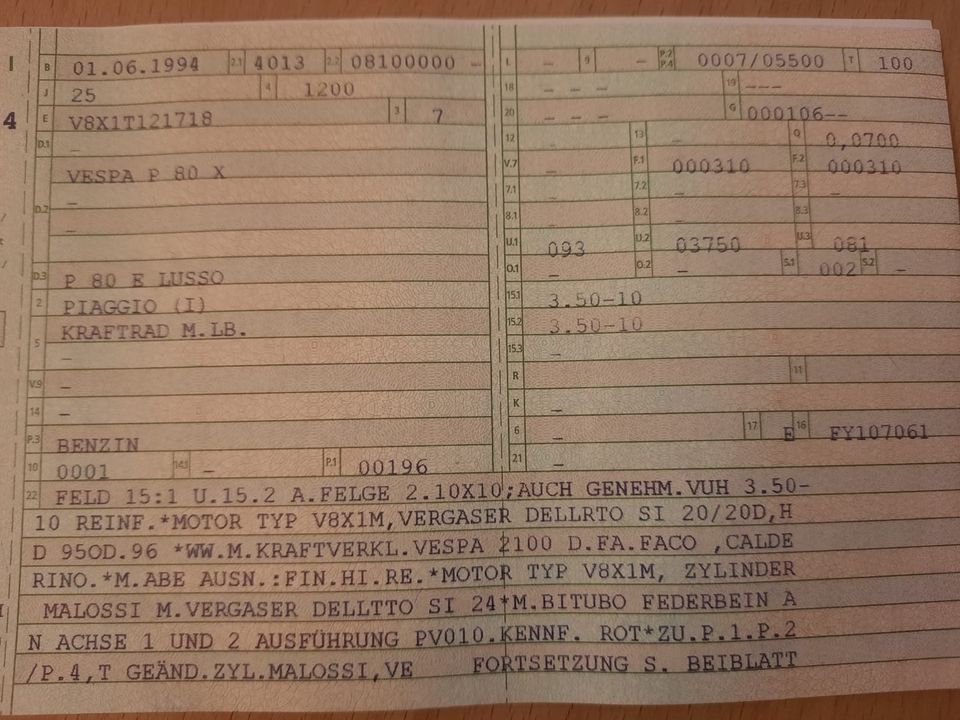 B 01.06.1994 2.1 4013 2.2 08100000 -
J 25 4 1200
4 E V8X1T121718 3 7
D.1 -
D.2 VESPA P 80 X
-
-
D.3 P 80 E LUSSO
2 PIAGGIO (I)
5 KRAFTRAD M.LB.
-
V.9 -
14 -
P.3 BENZIN
10 0001 14.1 - P.1 00196
L - 9 - P.2 P.4 0007/05500 T 100
18 - - - 19 ---
20 - - - G 000106--
12 - 13 - Q 0,0700
V.7 - F.1 000310 F.2 000310
7.1 - 7.2 - 7.3 -
8.1 - 8.2 - 8.3 -
U.1 093 U.2 03750 U.3 081
O.1 - O.2 - S.1 002 S.2 -
15.1 3.50-10
15.2 3.50-10
15.3 -
R 11
K -
6 - 17 E 16 FY107061
21 -
22 FELD 15:1 U.15.2 A.FELGE 2.10X10;AUCH GENEHM.VUH 3.50-
10 REINF.*MOTOR TYP V8X1M,VERGASER DELLRTO SI 20/20D,H
D 95OD.96 *WW.M.KRAFTVERKL.VESPA 2100 D.FA.FACO ,CALDE
RINO.*M.ABE AUSN.:FIN.HI.RE.*MOTOR TYP V8X1M, ZYLINDER
MALOSSI M.VERGASER DELLTTO SI 24*M.BITUBO FEDERBEIN A
N ACHSE 1 UND 2 AUSFÜHRUNG PV010.KENNF. ROT*ZU.P.1.P.2
/P.4,T GEÄND.ZYL.MALOSSI,VE FORTSETZUNG S. BEIBLATT